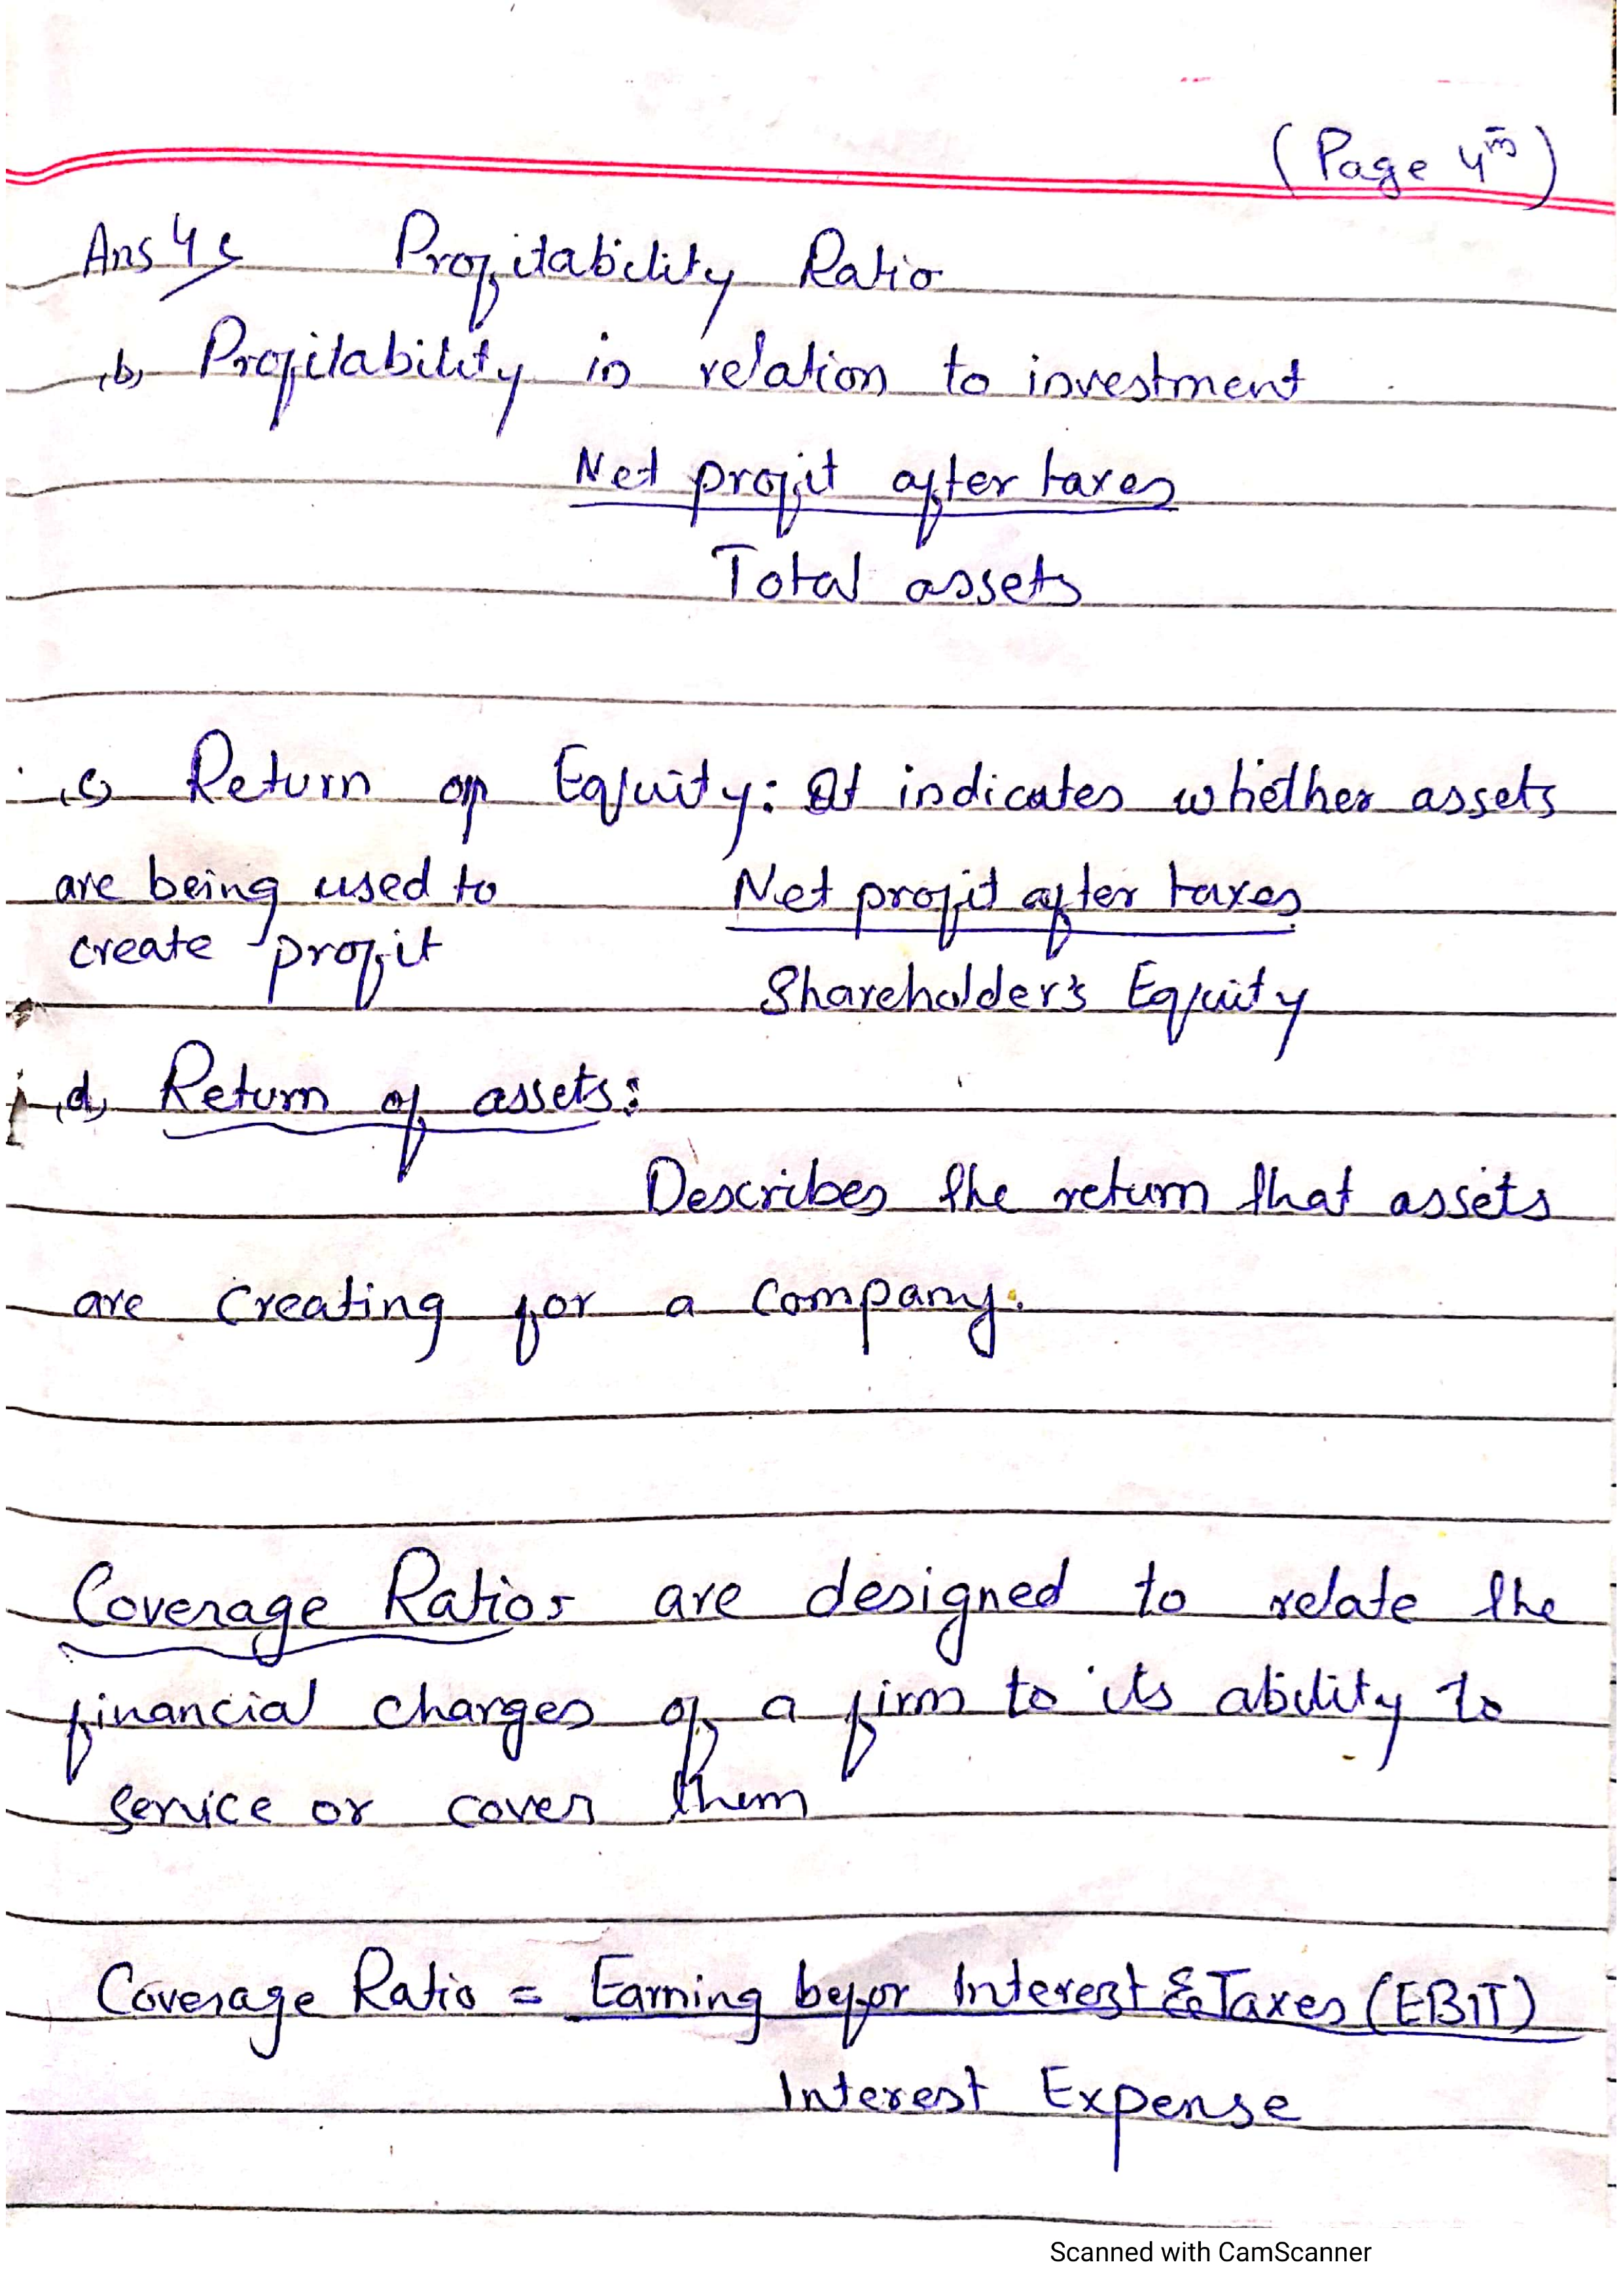 (Page 4th)
Ans 4 Profitability Ratio
(b) Profitability in relation to investment
Net profit after taxes
Total assets
(c) Return of Equity: It indicates whether assets
are being used to
create profit
Net profit after taxes
Shareholder's Equity
(d) Return of assets:
Describes the return that assets
are creating for a company.
Coverage Ratios are designed to relate the
financial charges of a firm to its ability to
service or cover them
Coverage Ratio = Earning befor Interest & Taxes (EBIT)
Interest Expense
Scanned with CamScanner